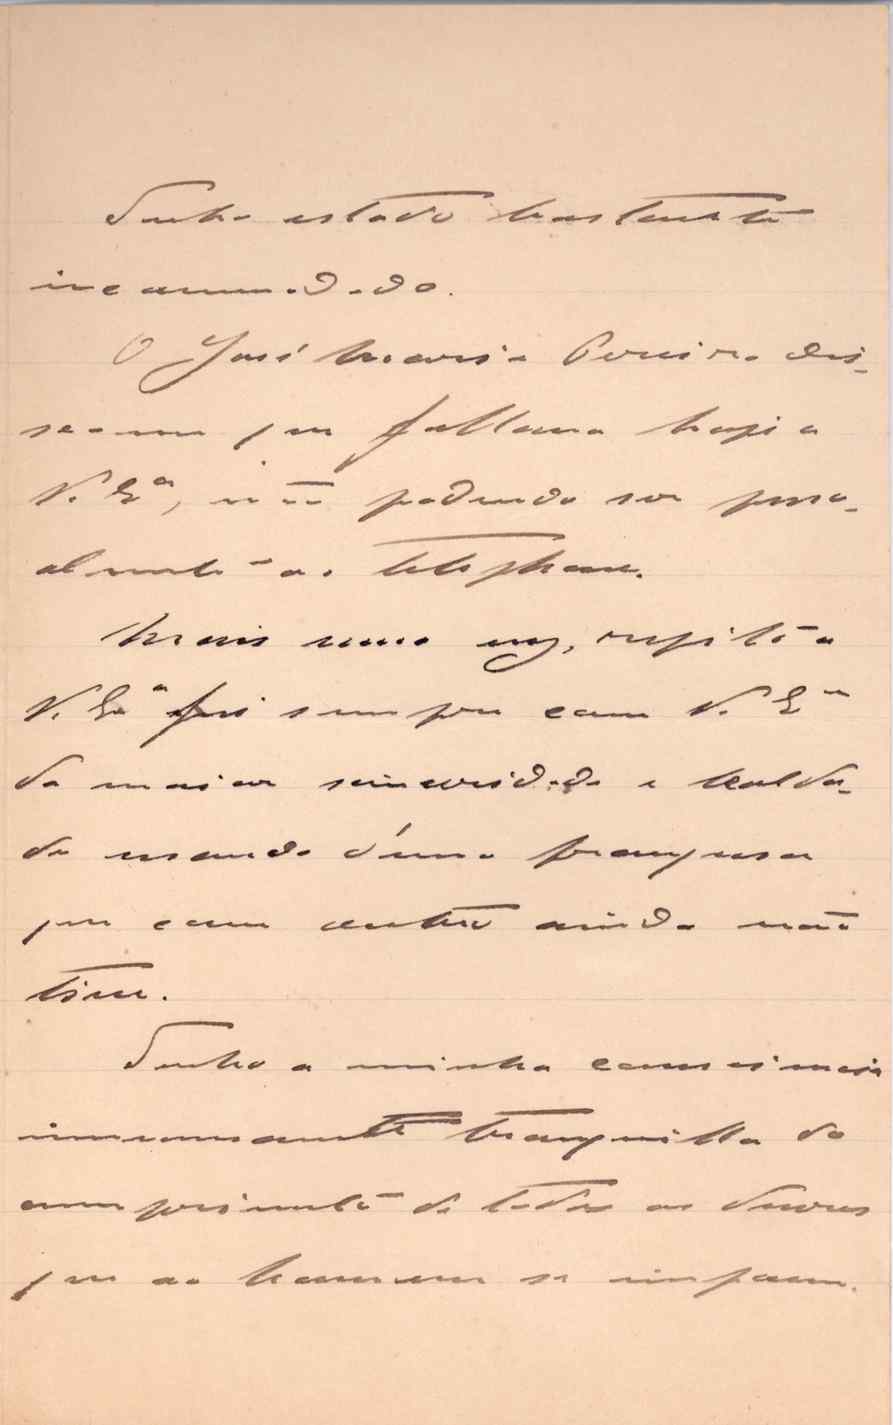 Tenho estado bastante
incommodado.
O José Maria Pereira dis-
se-me que fallava hoje a
V. Exª, não podendo ser pesso-
almente ao telephone.
Mais uma vez, repito a
V. Exª fui sempre com V. Exª
da maior sinceridade e lealda-
de usando d'uma franqueza
que com outro ainda não
tive.
Tenho a minha consciencia
immensamente tranquilla do
cumprimento de todos os deveres
que ao homem se impoem.